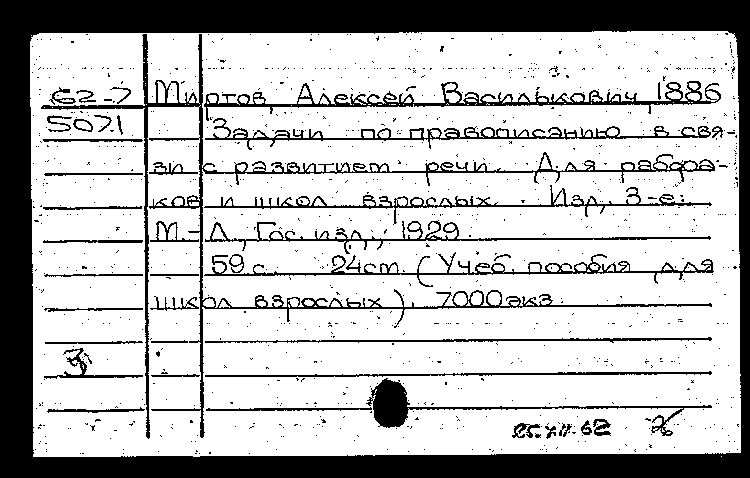 62-7 Миртов, Алексей Василькович, 1886
507.1 Задачи по правописанию в свя-
зи с развитием речи. Для рабфа-
ков и школ взрослых. Изд, 3-е.
М.-Л., Гос. изд., 1929.
59 с. 24 cm. (Учеб. пособия для
школ взрослых). 7000 экз.
25.XII.62